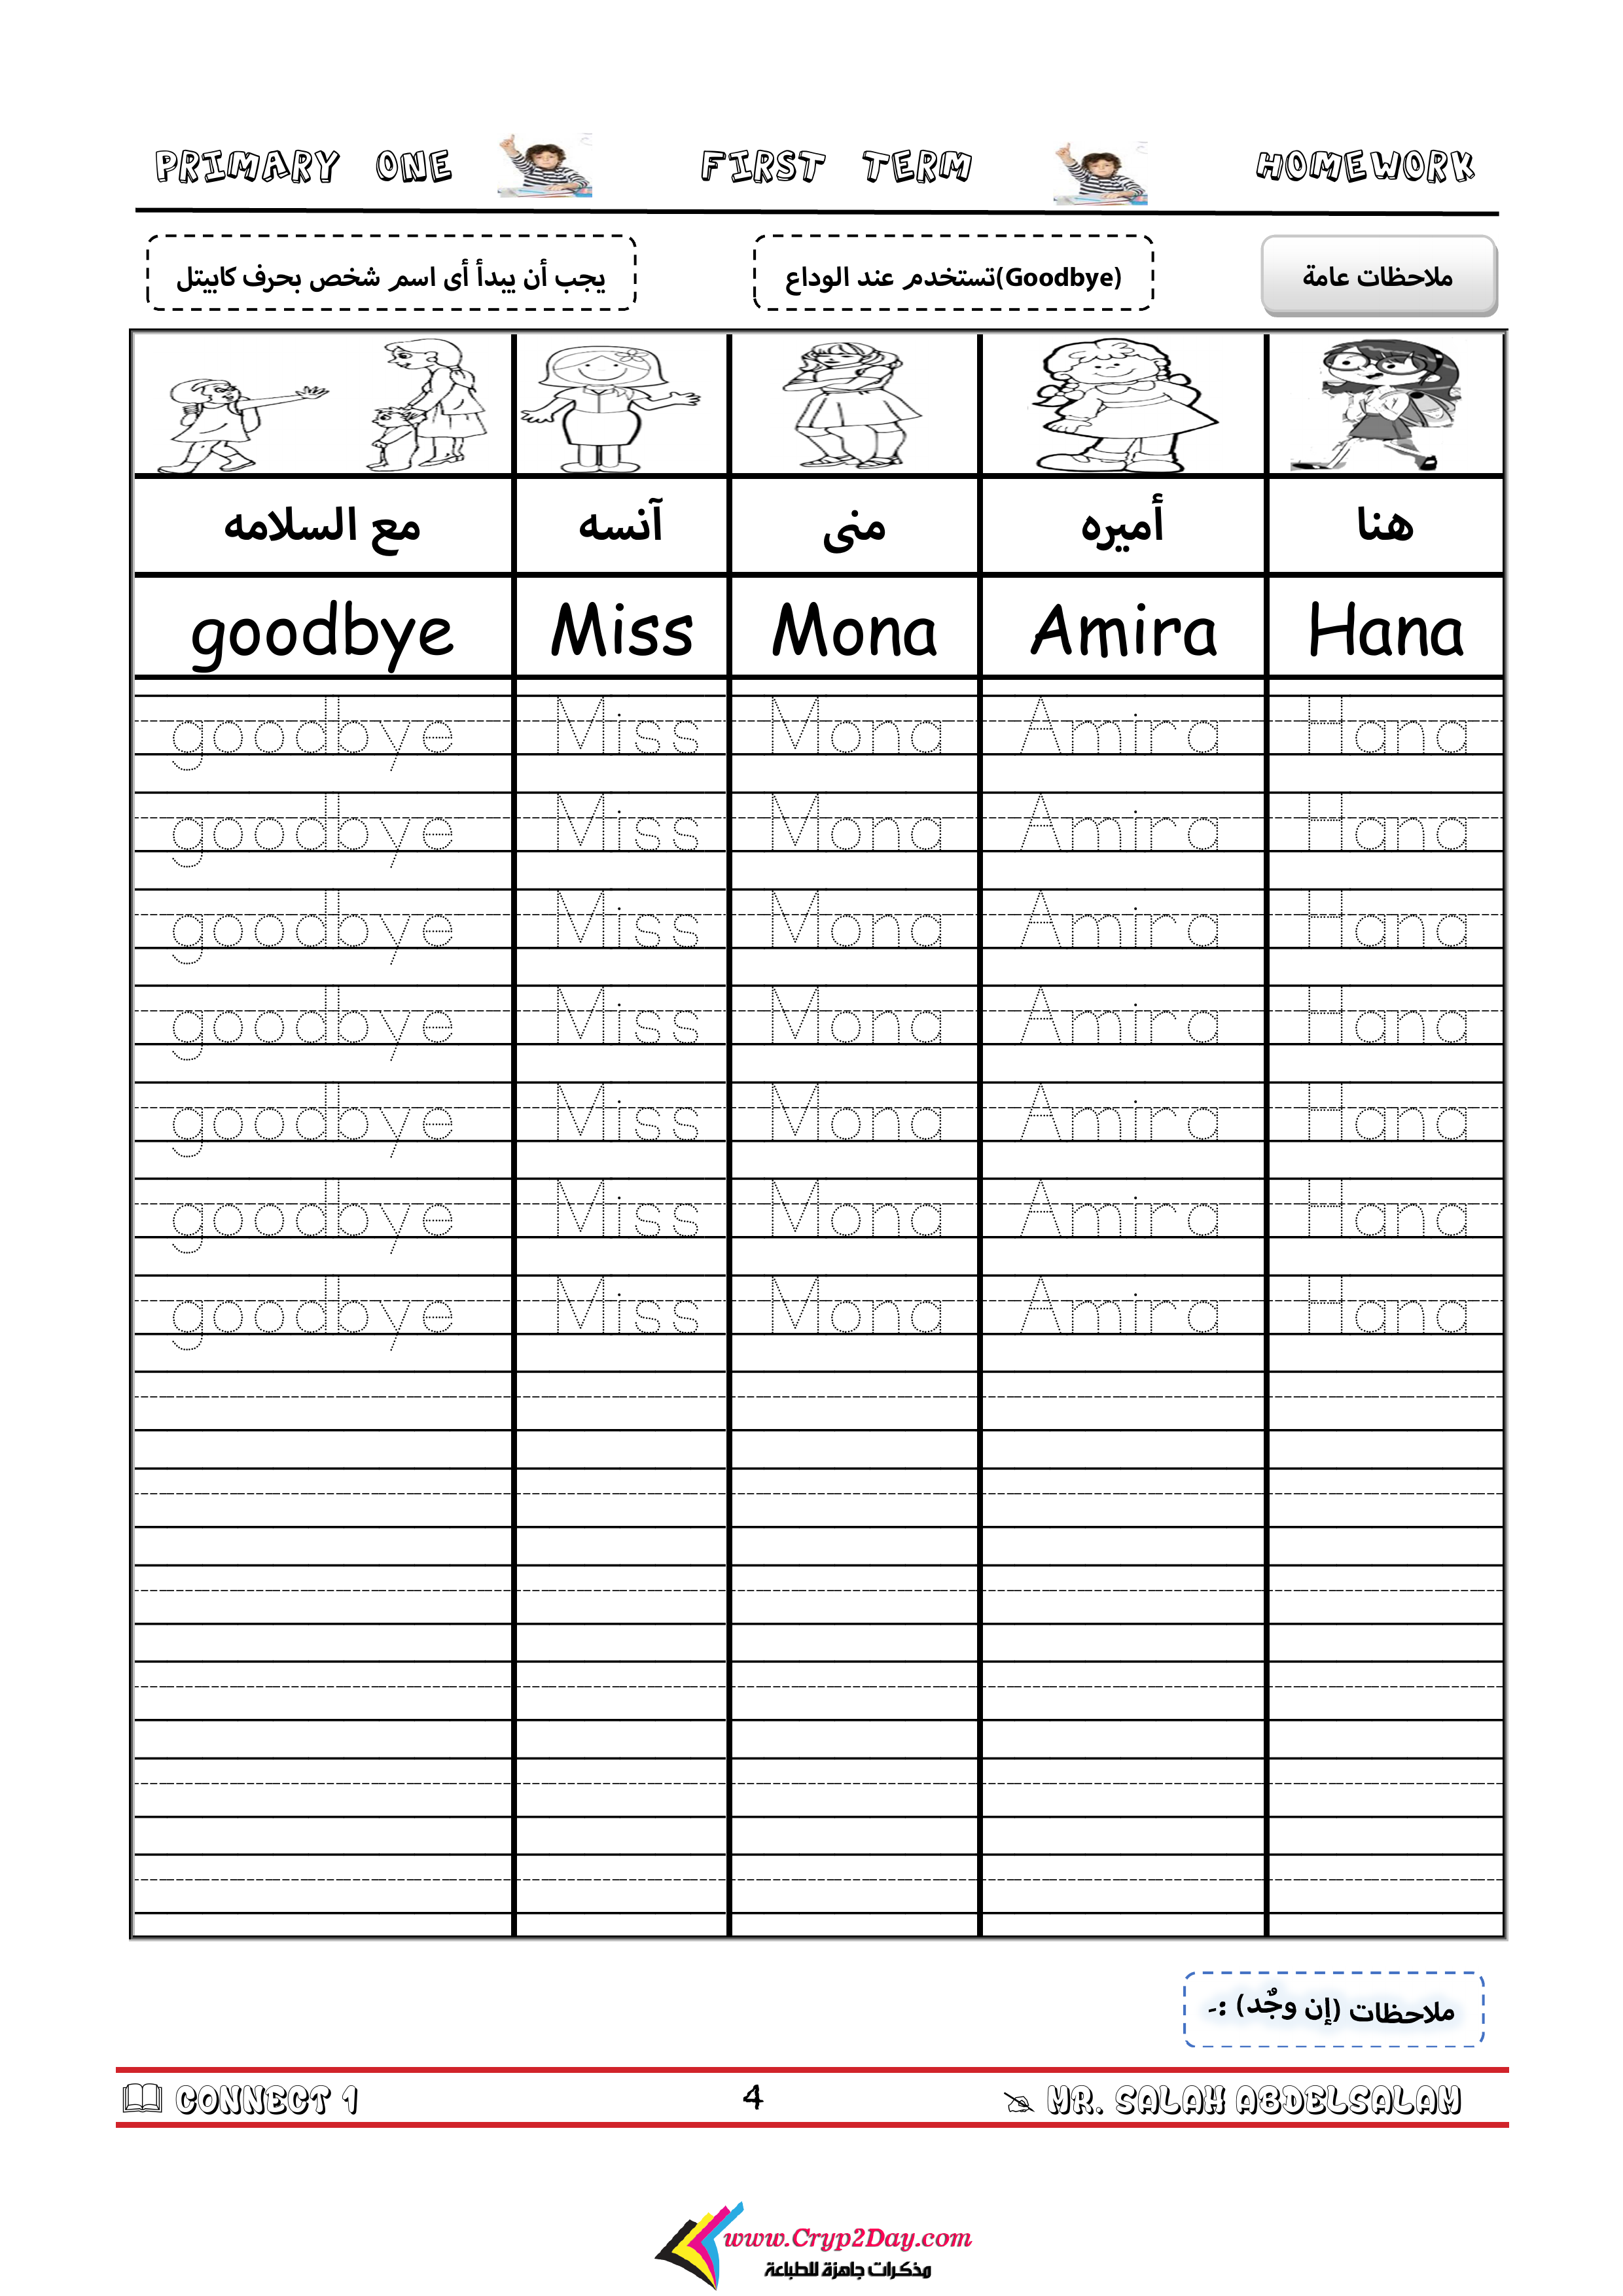 PRIMARY ONE FIRST TERM HOMEWORK
ملاحظات عامة
(Goodbye)تستخدم عند الوداع
يجب أن يبدأ أى اسم شخص بحرف كابيتل
مع السلامه آنسه منى أميره هنا
goodbye Miss Mona Amira Hana
goodbye Miss Mona Amira Hana
goodbye Miss Mona Amira Hana
goodbye Miss Mona Amira Hana
goodbye Miss Mona Amira Hana
goodbye Miss Mona Amira Hana
goodbye Miss Mona Amira Hana
goodbye Miss Mona Amira Hana
ملاحظات (إن وجٌد) :-
CONNECT 1 4 MR. SALAH ABDELSALAM
www.Cryp2Day.com
مذكرات جاهزة للطباعة